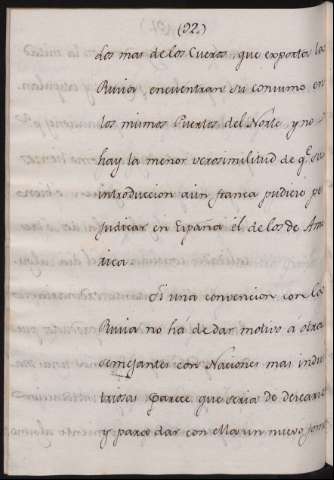 (92.)
dos mas de los Cueros, que exporta la
Rusia, encuentran su consumo en
los mismos Puertos del Norte, y no
hay la menor verosimilitud de q.e su
introduccion aun franca pudiese per
judicar en España él de los de Amé
rica.
Si una convencion con la
Rusia no há de dar motivo á otras
semejantes con Naciones mas indus
triosas parece que seria de desearse
y parece dar con ellas un nuevo